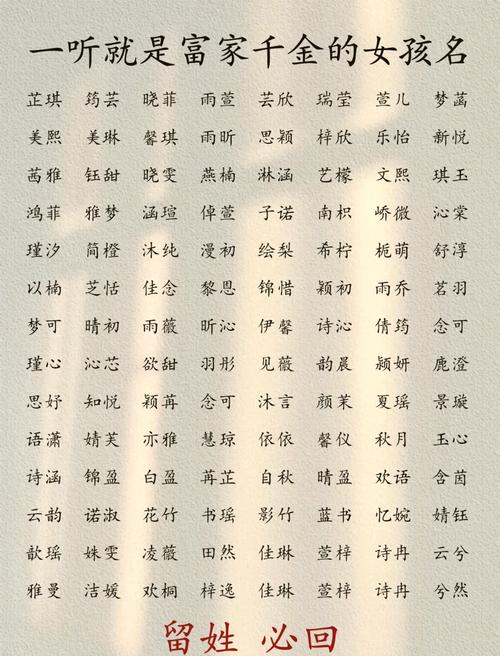 一听就是富家千金的女孩名
芷琪 筠芸 晓菲 雨萱 芸欣 瑞莹 萱儿 梦菡
美熙 美琳 馨琪 雨昕 思颖 梓欣 乐怡 新悦
茜雅 钰甜 晓雯 燕楠 淋涵 艺檬 文熙 琪玉
鸿菲 雅梦 涵瑄 倬萱 子诺 南枳 峤微 沁棠
瑾汐 简橙 沐纯 漫初 绘梨 希柠 栀萌 舒淳
以楠 芝恬 佳念 黎恩 锦惜 颖初 雨乔 茗羽
梦可 晴初 雨薇 昕沁 伊馨 诗沁 倩筠 念可
瑾心 沁芯 欲甜 羽彤 见薇 韵晨 颍妍 鹿澄
思妤 知悦 颖苒 念可 沐言 颜茉 夏瑶 景璇
语潇 婧芙 亦雅 慧琼 依依 馨仪 秋月 玉心
诗涵 锦盈 白盈 苒芷 自秋 晴盈 欢语 含茵
云韵 诺淑 花竹 书瑶 影竹 蓝书 忆婉 婧钰
歆瑶 姝雯 凌薇 田然 佳琳 萱梓 诗冉 云兮
雅曼 洁媛 欢桐 梓逸 佳琳 萱梓 诗冉 兮然
留姓 必回